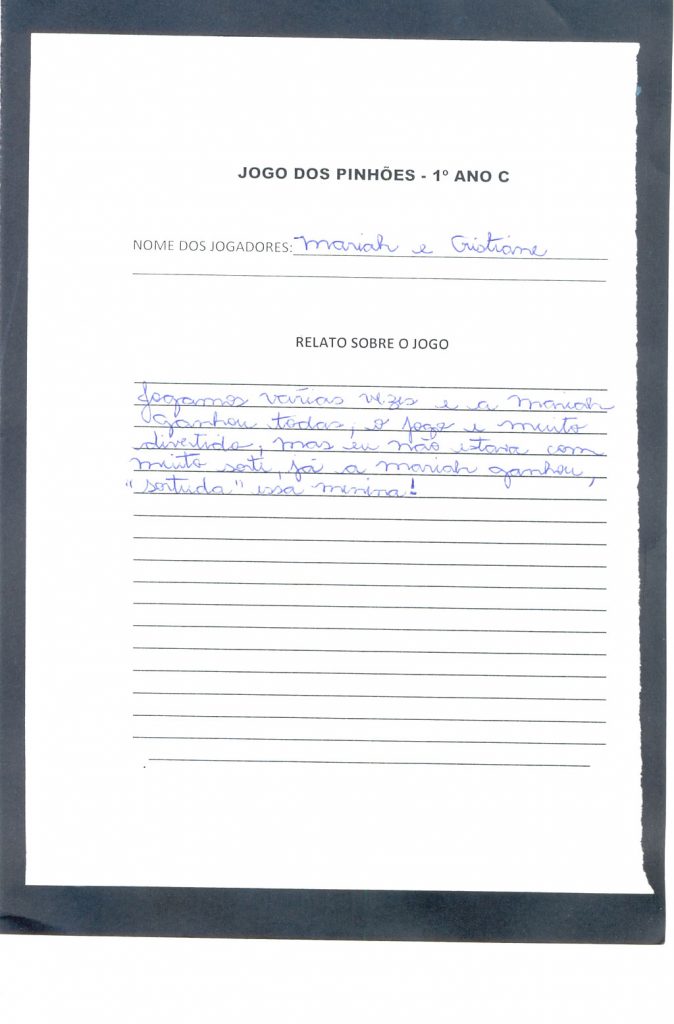 JOGO DOS PINHÕES - 1º ANO C
NOME DOS JOGADORES: Mariah e Cristiane
RELATO SOBRE O JOGO
Jogamos várias vezes e a Mariah
ganhou todas, o jogo e muito
divertido, mas eu não estava com
muito sorte, já a mariah ganhou,
"sortuda" essa menina!